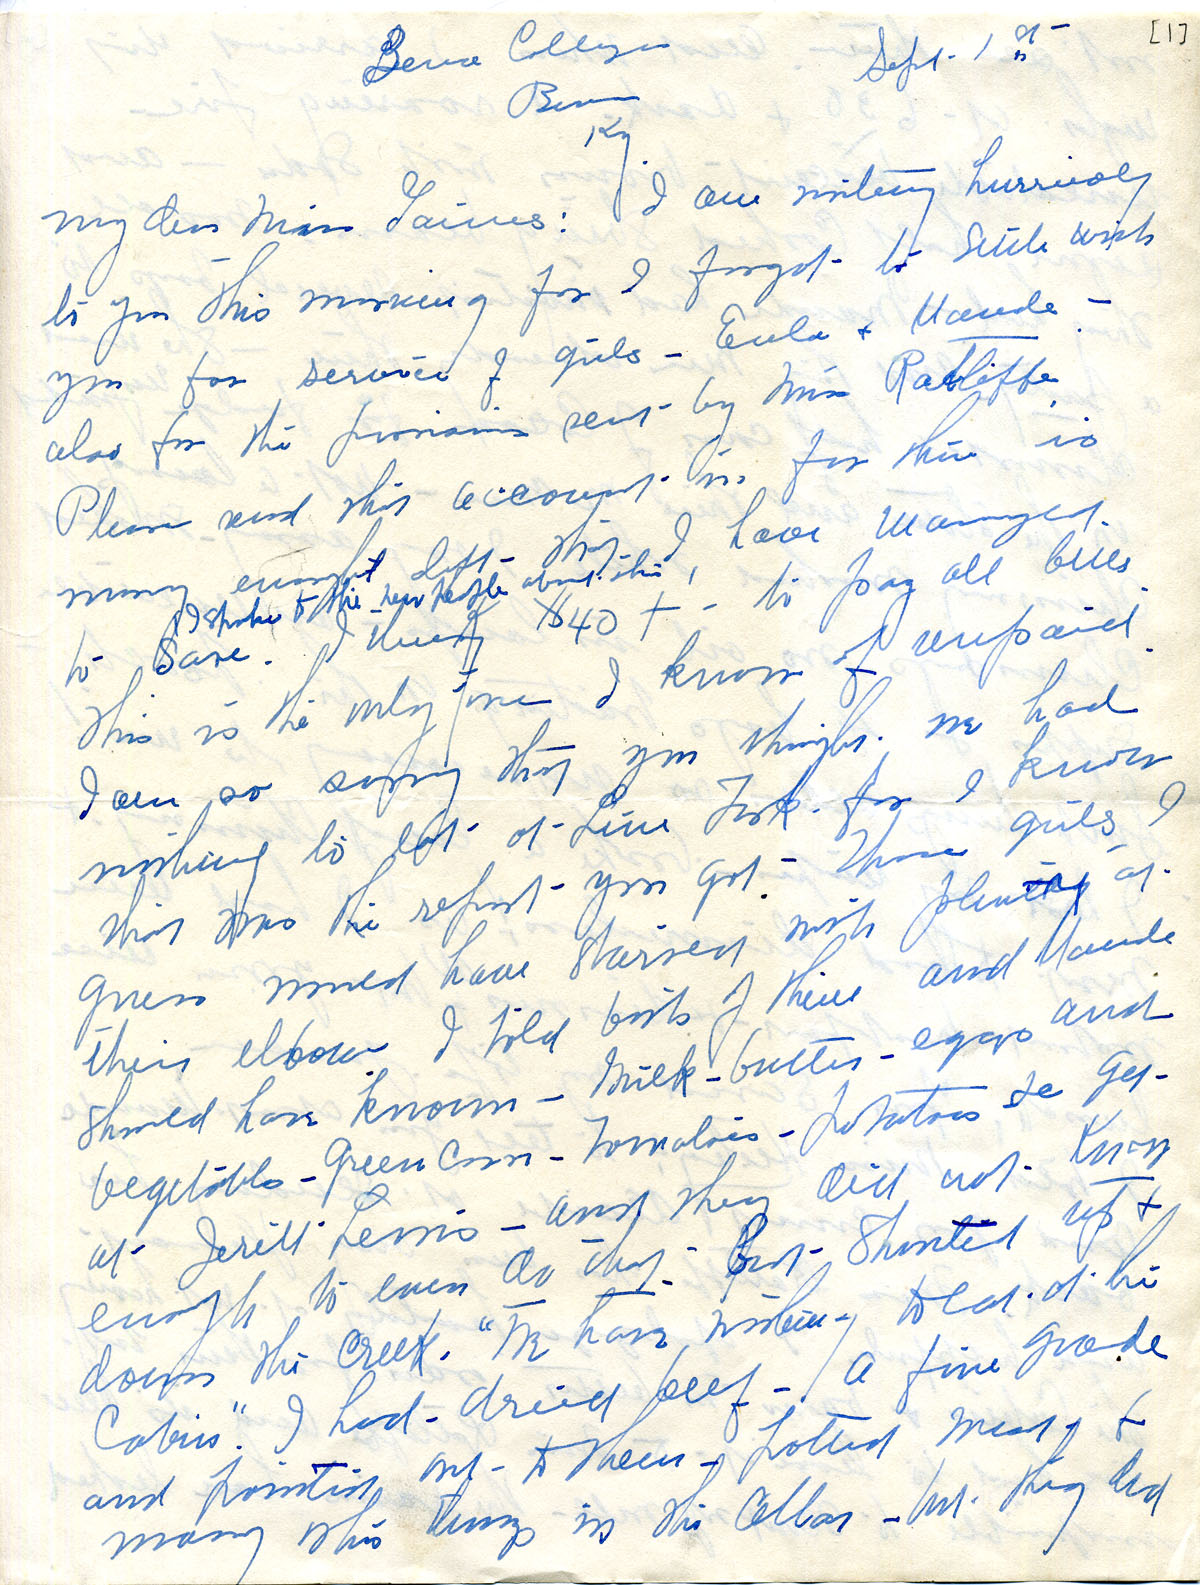 [1]
Berea College Sept. 1st
Berea
Ky.
My dear Miss Gaines: I am writing hurriedly
to you this morning for I forgot to settle with
you for service of girls - Eula & Maude -
also for the provisions sent by Miss Ratliffe.
Please send this account in for there is
money enough left - that I have managed
I spoke to the new people about this
to save. I think $40 + - to pay all bills.
This is the only one I know of unpaid.
I am so sorry that you thought we had
nothing to eat at Line Fork - for I know
that was the report you got. Those girls I
guess would have starved with plenty at
their elbow I told both of them and Maude
should have known - milk - butter - eggs and
vegetables - green corn - tomatoes - potatoes to get
at Jerill Lewis - and they did not know
enough to even do that. But shouted up &
down the creek. "We have nothing to eat at the
Cabin". I had dried beef - a fine grade
and pointed out to them - potted meat &
many things in the cellar - but they did